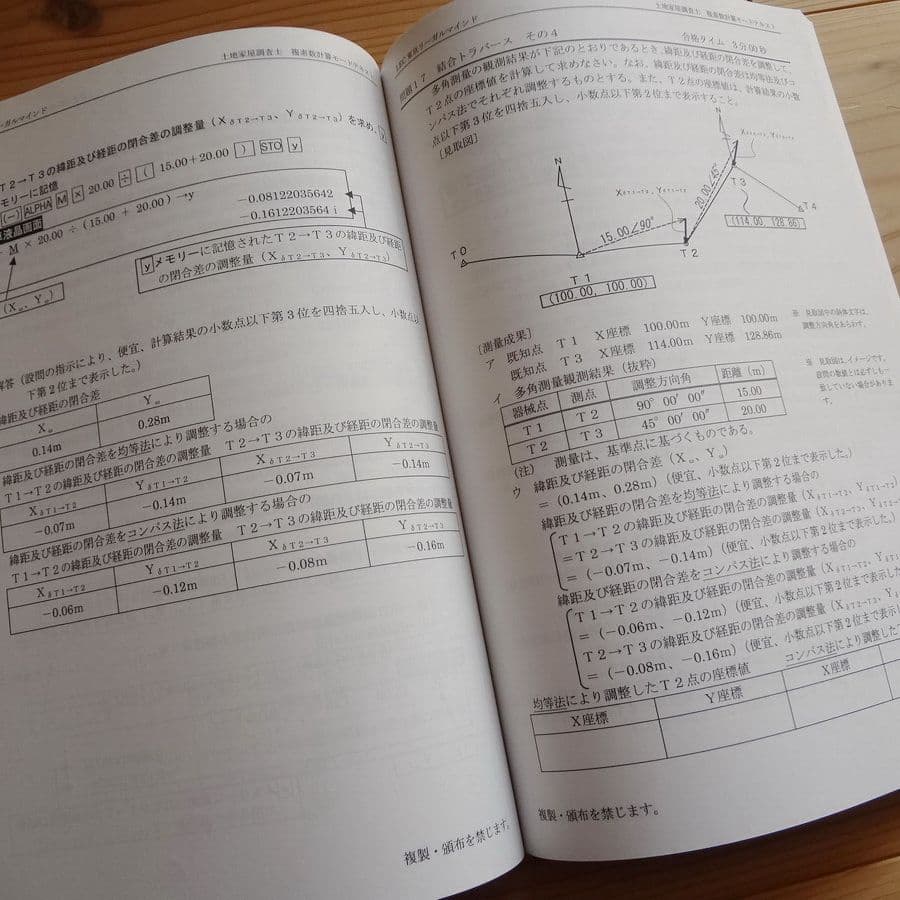 ーガルマインド
土地家屋調査士 複素数計算モードテキスト
T2→T3の緯距及び経距の閉合差の調整量（XδT2→T3、YδT2→T3）を求め、y
メモリーに記憶
(−) ALPHA M × 20.00 ÷ ( 15.00+20.00 ) STO y
液晶画面
− M × 20.00 ÷ (15.00 + 20.00) →y
−0.08122035642
−0.1612203564 i
yメモリーに記憶されたT2→T3の緯距及び経距
の閉合差の調整量（XδT2→T3、YδT2→T3）
解答（設問の指示により、便宜、計算結果の小数点以下第3位を四捨五入し、小数点以
下第2位まで表示した。）
緯距及び経距の閉合差
0.14m 0.28m
緯距及び経距の閉合差を均等法により調整する場合の
T1→T2の緯距及び経距の閉合差の調整量 T2→T3の緯距及び経距の閉合差の調整量
XδT1→T2 YδT1→T2 XδT2→T3 YδT2→T3
−0.07m −0.14m −0.07m −0.14m
緯距及び経距の閉合差をコンパス法により調整する場合の
T1→T2の緯距及び経距の閉合差の調整量 T2→T3の緯距及び経距の閉合差の調整量
XδT1→T2 YδT1→T2 XδT2→T3 YδT2→T3
−0.06m −0.12m −0.08m −0.16m
複製・頒布を禁じます。
LEC東京リーガルマインド
土地家屋調査士 複素数計算モードテキスト
問題17 結合トラバース その4
合格タイム 3分00秒
多角測量の観測結果が下記のとおりであるとき、緯距及び経距の閉合差を調整して、
T2点の座標値を計算して求めなさい。なお、緯距及び経距の閉合差は均等法及びコ
ンパス法でそれぞれ調整するものとする。また、T2点の座標値は、計算結果の小数
点以下第3位を四捨五入し、小数点以下第2位まで表示すること。
[見取図]
N
N
XδT2→T3、YδT2→T3
XδT1→T2、YδT1→T2
20.00∠45°
T3
T4
(114.00, 128.86)
15.00∠90°
T0
T2
T1
(100.00, 100.00)
[測量成果]
ア 既知点 T1 X座標 100.00m Y座標 100.00m
既知点 T3 X座標 114.00m Y座標 128.86m
イ 多角測量観測結果（抜粋）
器械点 測点 調整方向角 距離（m）
T1 T2 90° 00′ 00″ 15.00
T2 T3 45° 00′ 00″ 20.00
（注） 測量は、基準点に基づくものである。
※ 見取図中の斜体文字は、
調整方向角をあらわす。
※ 見取図は、イメージです。
設問の数値とは必ずしも一
致していない場合がありま
す。
ウ 緯距及び経距の閉合差
＝（0.14m、0.28m）（便宜、小数点以下第2位まで表示した。）
緯距及び経距の閉合差を均等法により調整する場合の
T1→T2の緯距及び経距の閉合差の調整量（XδT1→T2、YδT1→T2）
＝T2→T3の緯距及び経距の閉合差の調整量（XδT2→T3、Yδ
＝（−0.07m、−0.14m）（便宜、小数点以下第2位まで表示した。）
緯距及び経距の閉合差をコンパス法により調整する場合の
T1→T2の緯距及び経距の閉合差の調整量（XδT1→T2、YδT1
＝（−0.06m、−0.12m）（便宜、小数点以下第2位まで表示した
T2→T3の緯距及び経距の閉合差の調整量（XδT2→T3、Yδ
＝（−0.08m、−0.16m）（便宜、小数点以下第2位まで表示し
均等法により調整したT2点の座標値
コンパス法により調整したT
X座標 Y座標 X座標
複製・頒布を禁じます。